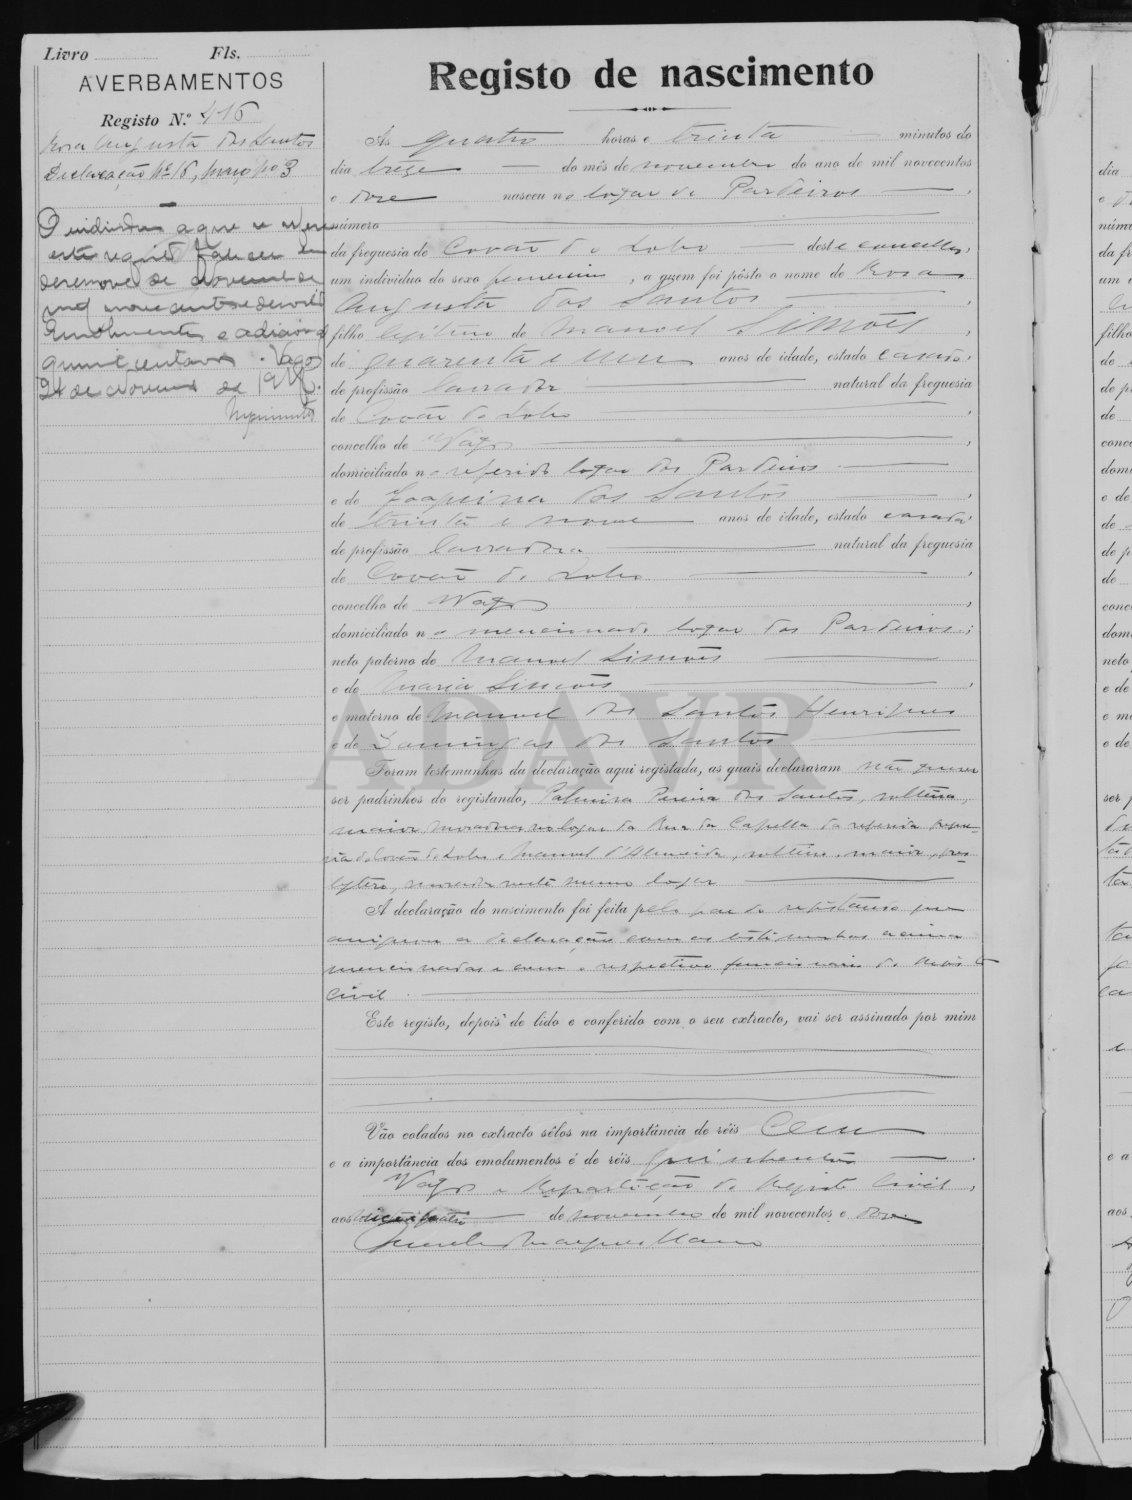 Livro Fls.
AVERBAMENTOS
Registo N.º 416
Rosa Augusta dos Santos
Declaração Nº 16, março 3
O individuo a que se refere
este registo faleceu em
desenove de Novembro de
mil novecentos e desoito
Emolumentos e adicional
centavos. Vagos
24 de Novembro de 1918.
Registo de nascimento
Ás quatro horas e trinta minutos do
dia treze do mês de novembro do ano de mil novecentos
e doze nasceu no logar de Pardeiros,
número
da freguesia de Covão do Lobo deste concelho,
um indivíduo do sexo femenino, a quem foi pôsto o nome de Rosa
Augusta dos Santos,
filho legitimo de Manoel Simões,
de quarenta e um anos de idade, estado casado,
de profissão lavrador natural da freguesia
de Covão do Lobo,
concelho de Vagos,
domiciliado no referido logar dos Pardeiros
e de Joaquina dos Santos,
de trinta e nove anos de idade, estado casada,
de profissão lavradora natural da freguesia
de Covão do Lobo,
concelho de Vagos,
domiciliado no mencionado logar dos Pardeiros;
neto paterno de Manoel Simões
e de Maria Simões,
e materno de Manuel dos Santos Henriques
e de Domingas dos Santos
Foram testemunhas da declaração aqui registada, as quais declararam não querer
ser padrinhos do registando, Palmira Pereira dos Santos, solteira,
maior moradora no logar da Rua da Capella da referida fregue-
sia do Covão do Lobo e Manuel d'Almeida, solteiro, maior, pres-
bytero, morador neste mesmo logar
A declaração do nascimento foi feita pelo pae do registando que
assignou a declaração com as testimunhas acima
mencionadas e com o respectivo funcionario do registo
civil.
Este registo, depois de lido e conferido com o seu extracto, vai ser assinado por mim
Vão colados no extracto sêlos na importância de réis Cem
e a importância dos emolumentos é de réis quinhentos.
Vagos e Repartição do Registo Civil,
aos de novembro de mil novecentos e doze.
ADAVR